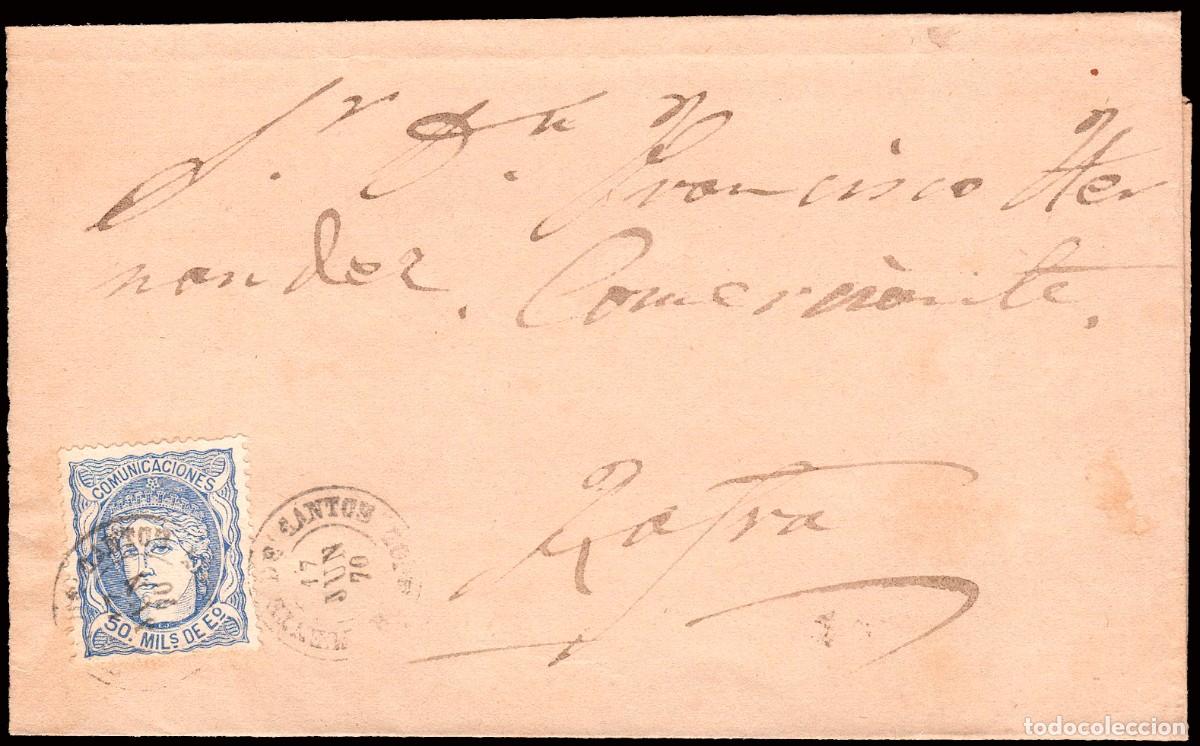 Sr. Dn. Francisco Her
nandez. Comerciante.
Zafra
COMUNICACIONES
50. MILS. DE EO.
SANTOS
17
JUN
70
todocoleccion